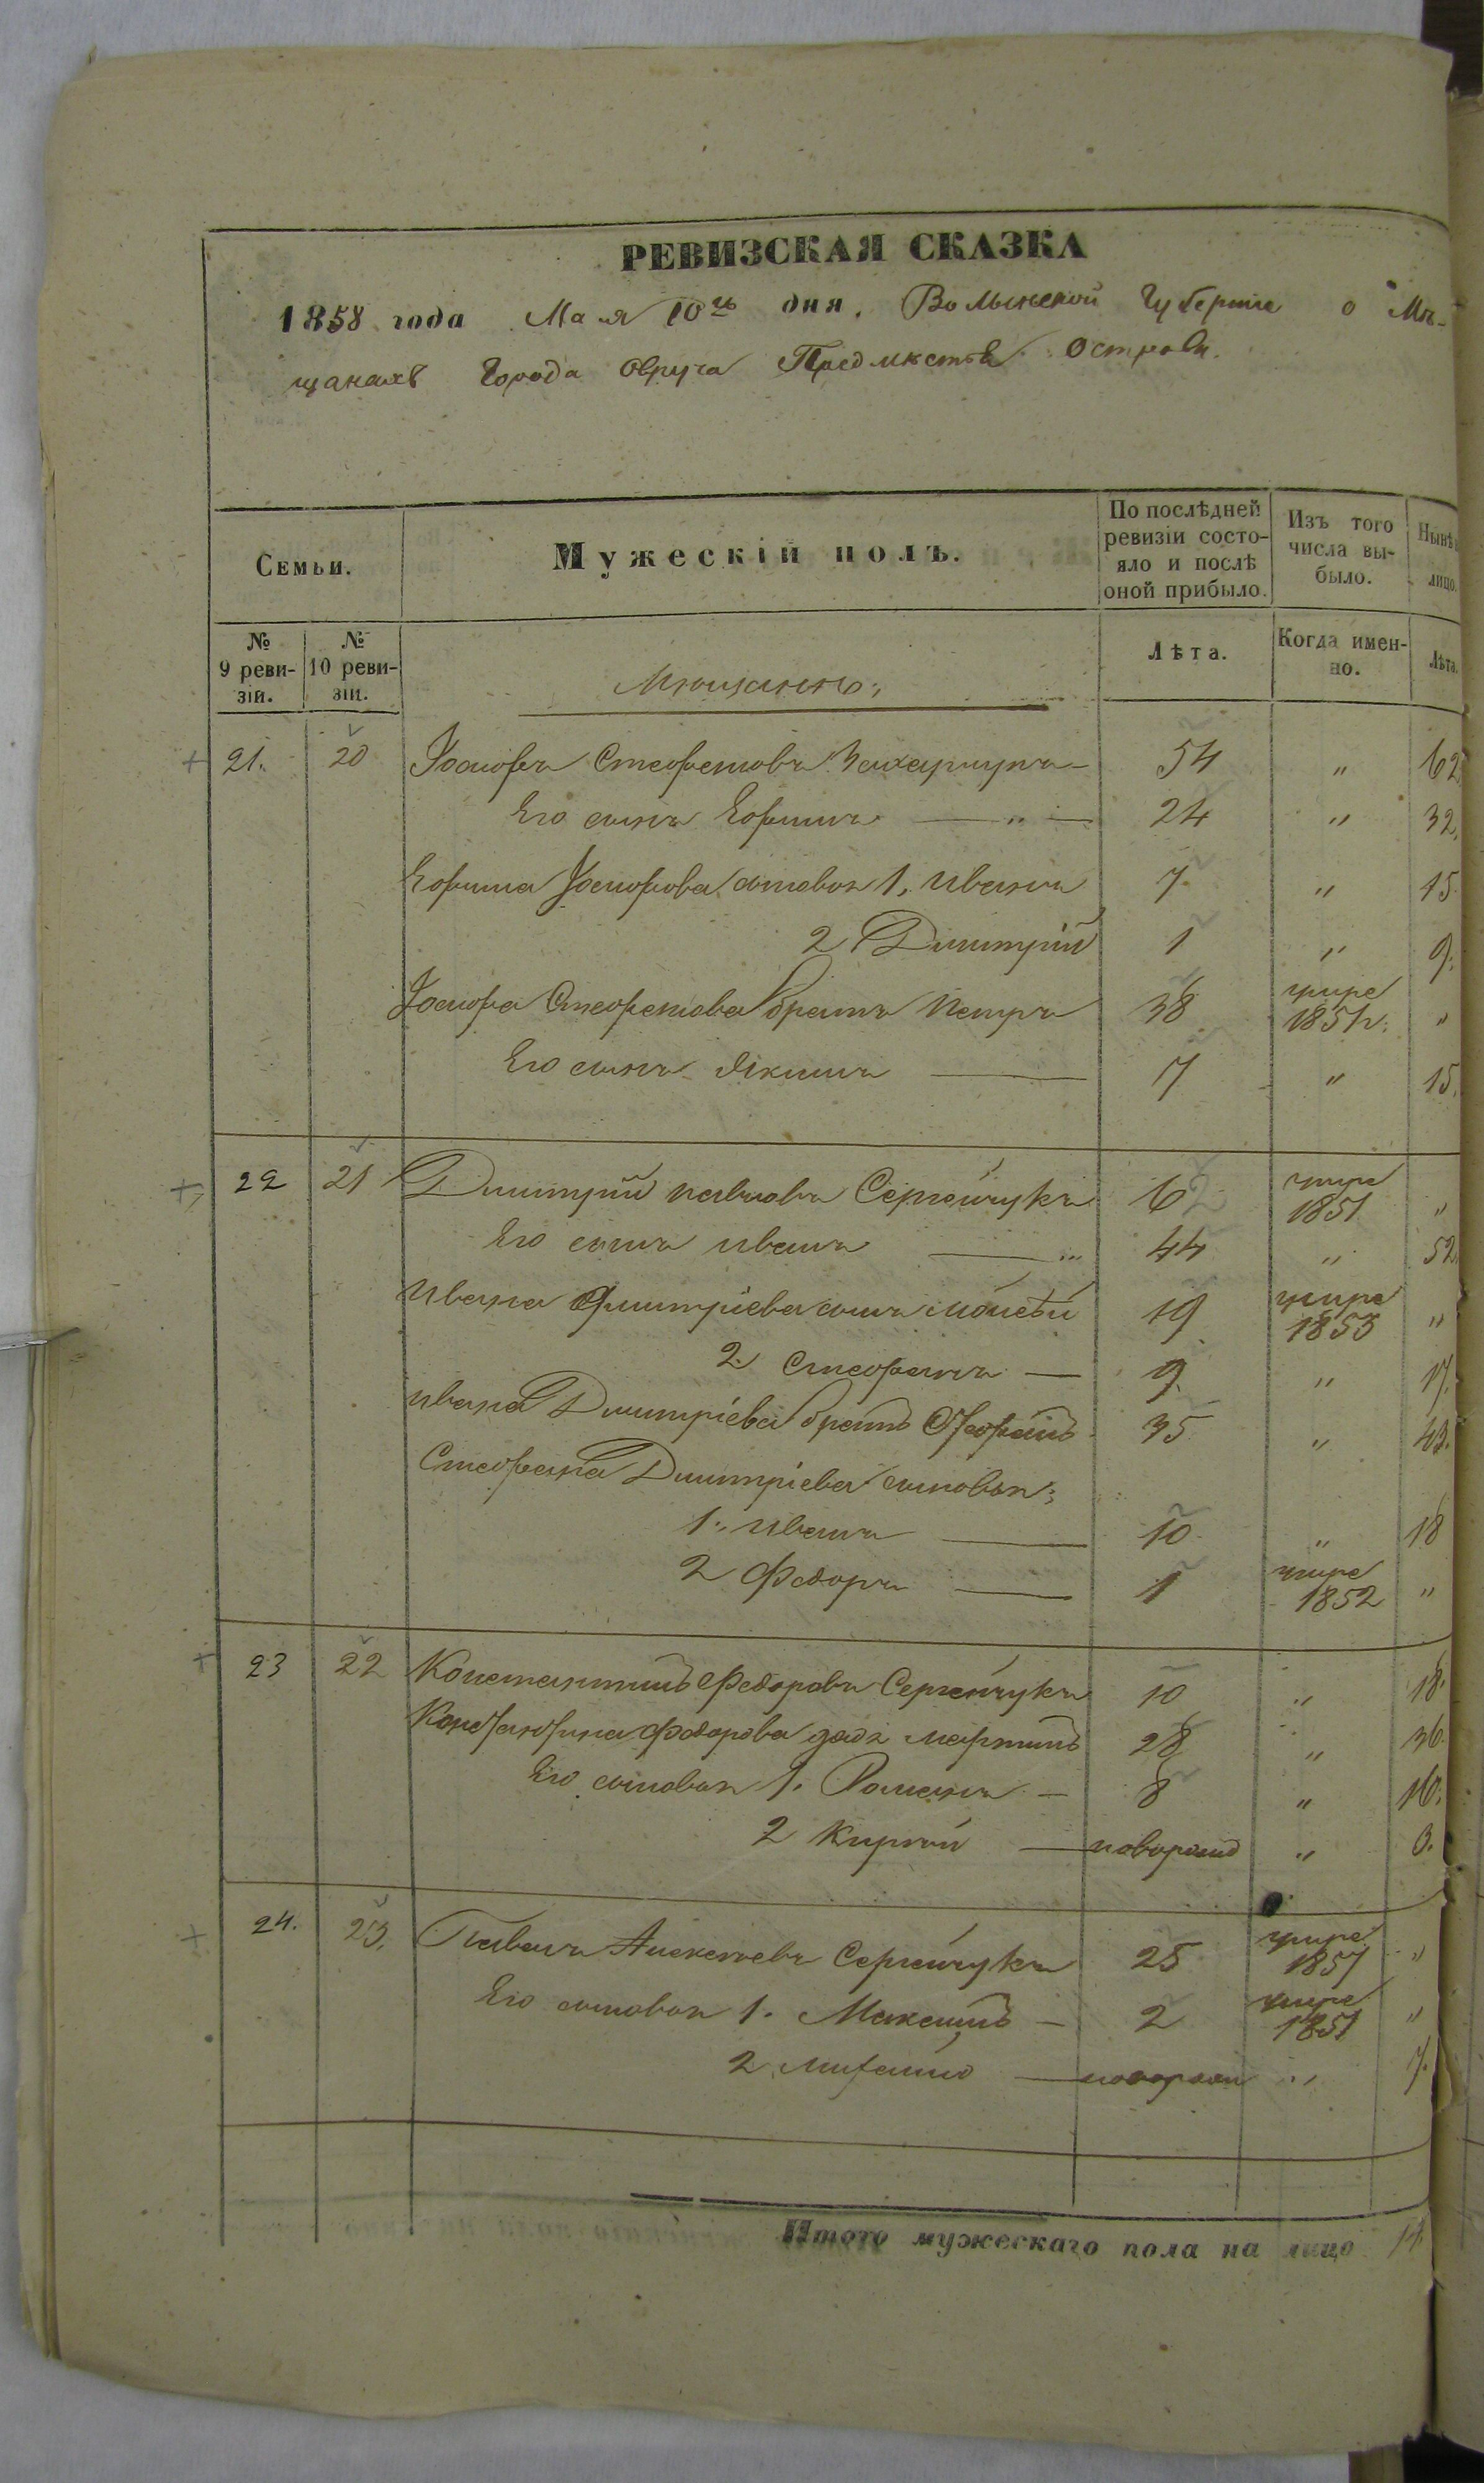 РЕВИЗСКАЯ СКАЗКА
1858 года Мая 10го дня. Волынской Губернiи о Мѣ-
щанахъ Города Овруча Предмѣстья Острова.
Семьи.
Мужескій полъ.
По послѣдней ревизіи состо-яло и послѣ оной прибыло.
Изъ того числа вы-было.
Нынѣ лицо.
№ 9 реви-зіи.
№ 10 реви-зіи.
Мѣщанѣ:
Лѣта.
Когда имен-но.
Лѣта.
21. 20 Іосифъ Стефановъ Захарчукъ 54 " 62
Его сынъ Ефимъ — " — 24 " 32.
Ефима Іосифова сыновья 1, Иванъ 7. " 15.
2 Димитрій 1 " 9.
Іосифа Стефанова братъ Петръ 38 умре "
Его сынъ Якимъ — 7 " 15.
22 21 Димитрій Павловъ Сергейчукъ 62 умре 1851 "
Его сынъ Иванъ — " 44 " 52.
Ивана Димитріева сынъ 19 умре 1853 "
2. Стефанъ — 9. " 17.
Ивана Димитріева братъ 35 " 43.
Стефана Димитріева сыновья:
1. Иванъ — 10 " 18
2 Федоръ — 1 умре 1852 "
23 22 Константинъ Федоровъ Сергейчукъ 10 " 18.
Константина Федорова дядя Мартинъ 28 " 36.
Его сыновья 1. Романъ — 8 " 16.
2 — новорожд " 3.
24. 23. Павелъ Алексеевъ Сергейчукъ 25 умре 1857 "
Его сыновья 1. Максимъ — 2 умре 1851 "
2. Михайло — новорожд " 7.
Итого мужескаго пола на лицо 14.